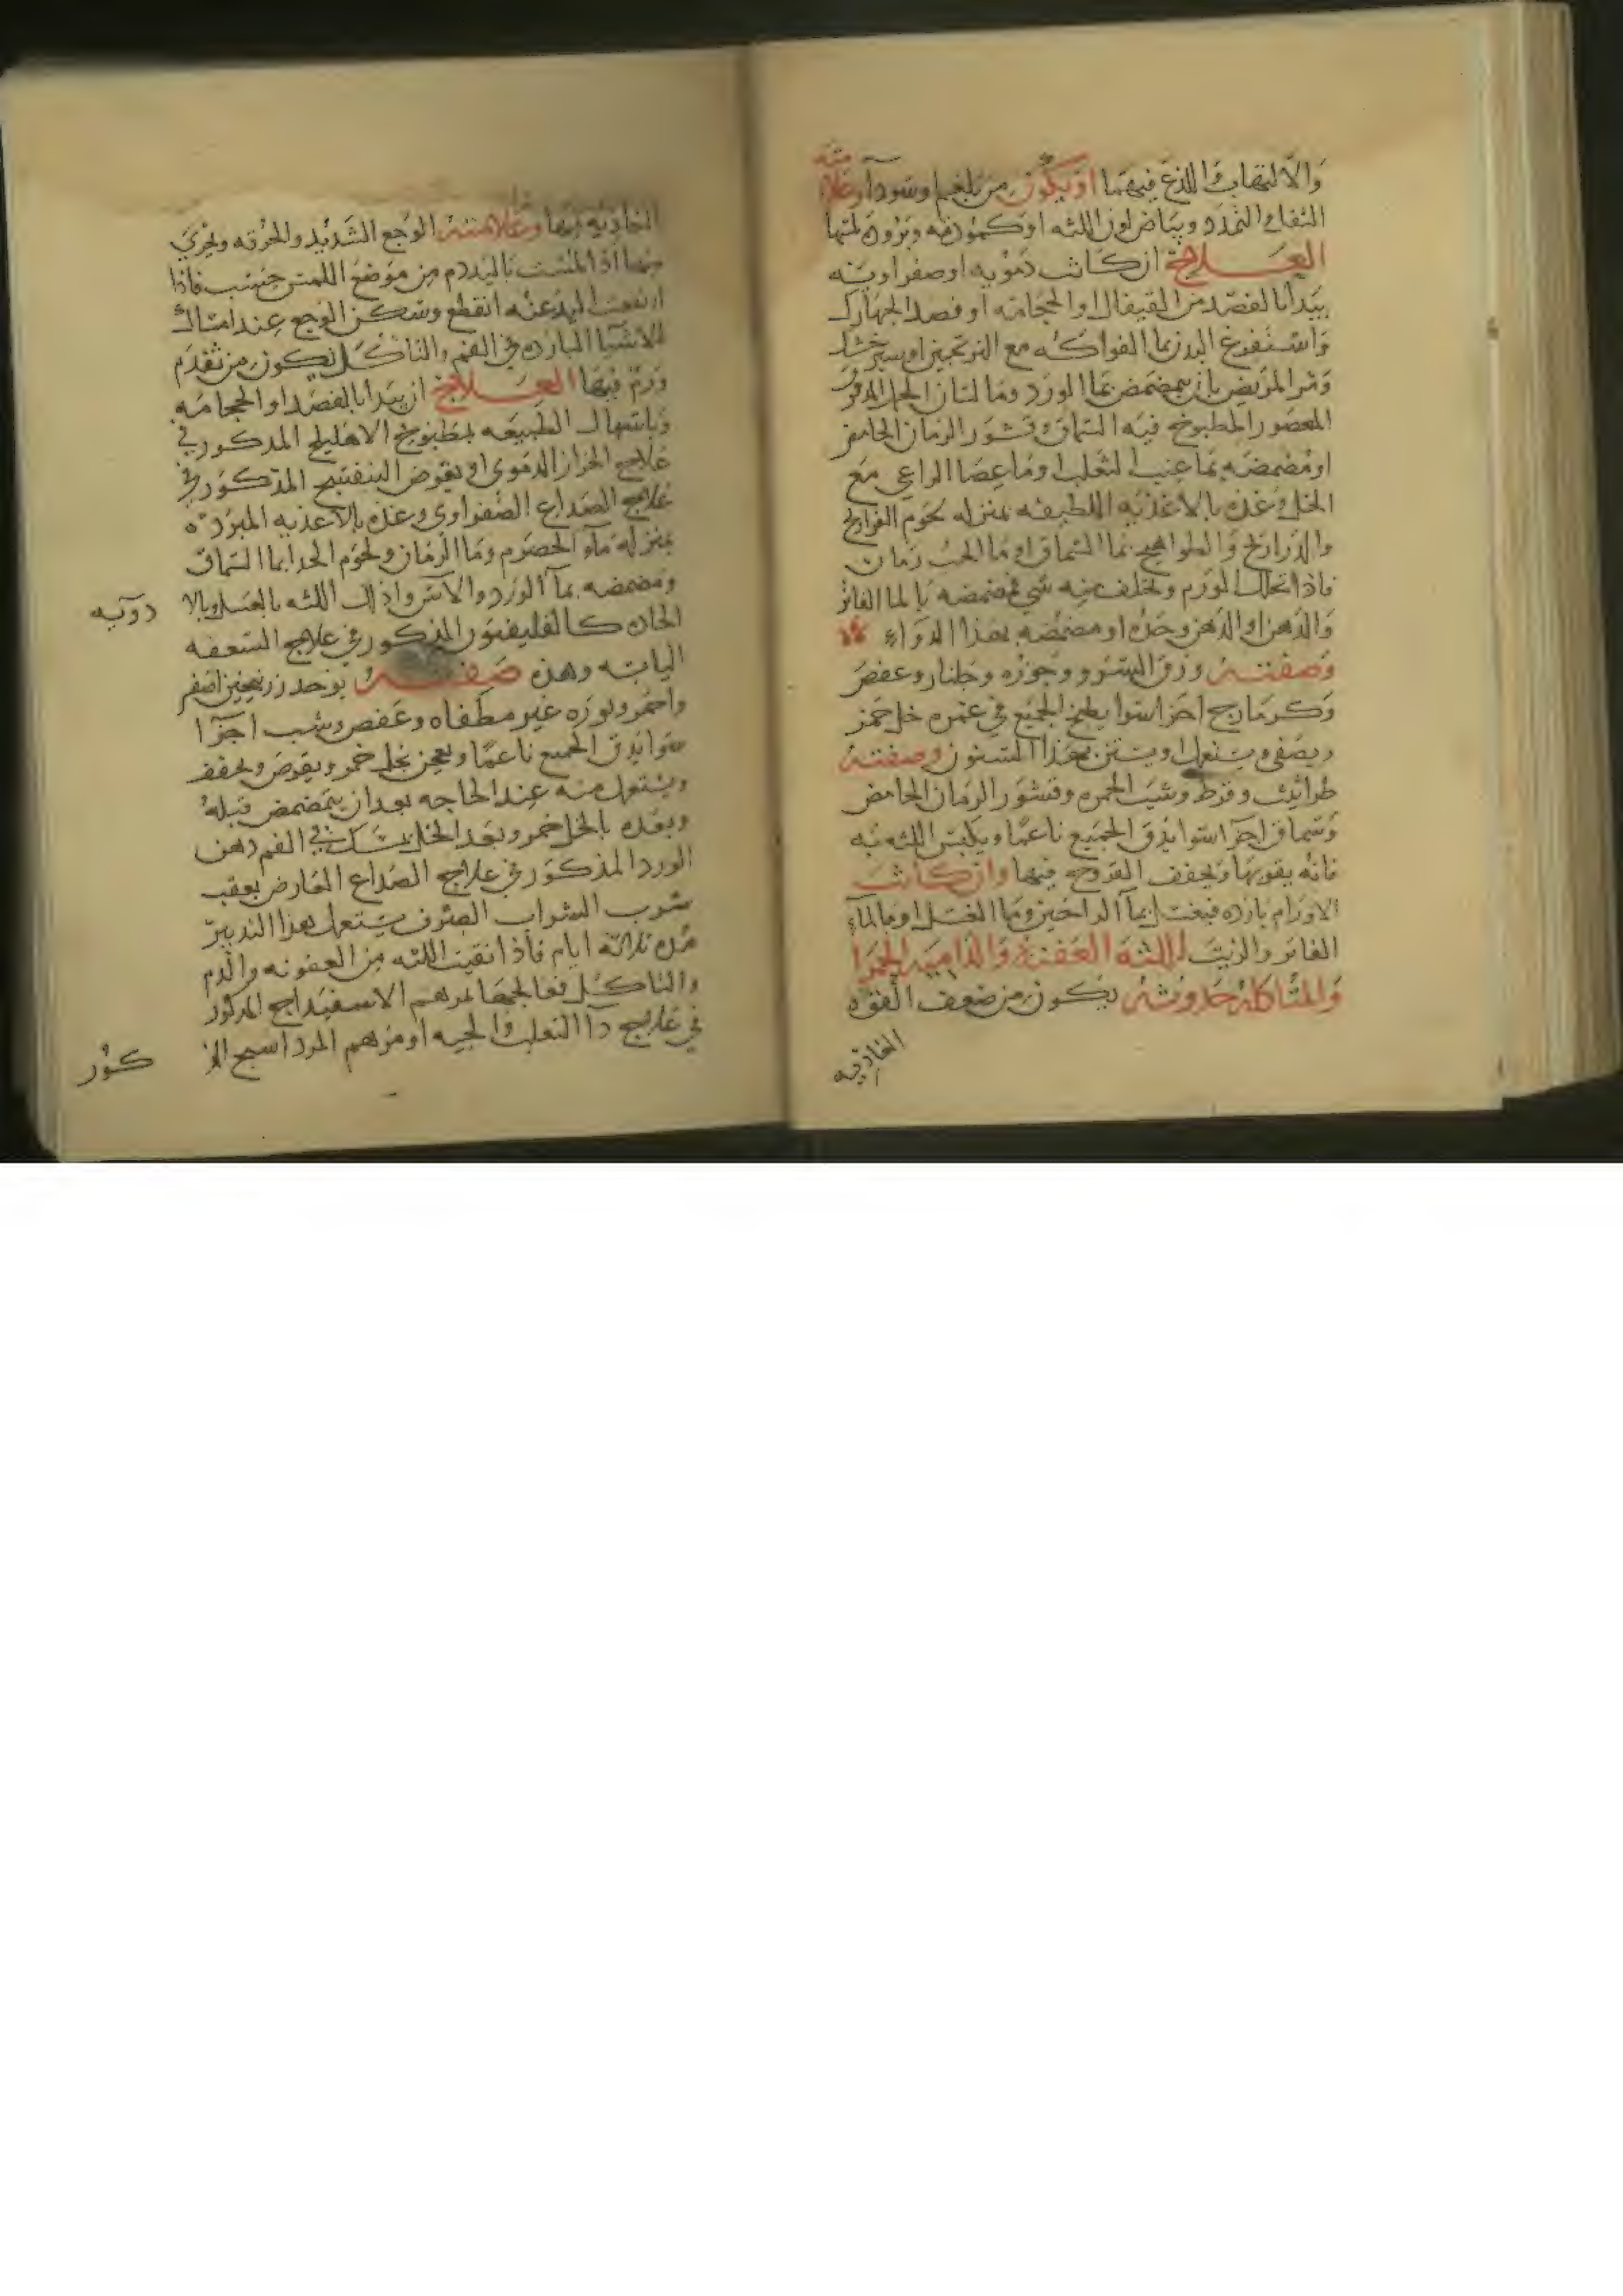 والالتهاب واللذع فيهما او يكون من بلغم او سودا وعلا
مته
انتفاخ التمدد وبياض لون اللثه او كمودته وبروده لمتها
العلاج ان كانت دمويه او صفراويه
يبدا بالفصد من القيفال او الحجامه او فصد الجهارك
واستفرغ البدن بما الفواكه مع الترنجبين او سيرخشك
ومر المريض بان يتمضمض بما الورد وما لسان الحمل المدقوق
المعصور المطبوخ فيه السماق وقشور الرمان الحامض
او مضمضه بما عنب الثعلب او ما عصا الراعي مع
الخل وغذه بالاغذيه اللطيفه بمنزله لحوم الفراريج
والدراريج والطواهيج بما السماق او ما الحب رمان
فاذا انحلت الورم وتخلف منه شي فمضمضه بالما الفاتر
والدهن او الدهن وحده او مضمضه بهذا الدواء
وصفته ورق السرو وجوزه وجلنار وعفص
وكزمازج اجزا سوا يطبخ الجميع في غمره خل خمر
ويصفى ويستعمل ويستن بهذا السنون وصفته
طراثيث وقرط وشب الحمره وقشور الرمان الحامض
وسماق اجزا سوا يدق الجميع ناعما ويكبس اللثه به
فانه يقويها ويجفف القروح فيها وان كانت
الاورام بارده فبعسل بما الداخين وما العسل او بالماء
الفاتر والزيت اللثه العفنه والداميه الحمرا
والمتاكله حدوثه يكون من ضعف القوه
الغاذيه
الغاذيه فيها وعلامته الوجع الشديد والحرقه ويجري
منها اذا المست باليد دم من موضع اللمس حسب فاذا
ارتفعت اليد عنه انقطع وسكن الوجع عند امساك
الاشيا البارده في الفم والتاكل يكون من تقدم
ورم فيها العلاج ان يبدا بالفصد او الحجامه
وباسهال الطبيعه بمطبوخ الاهليلج المذكور في
علاج الحزاز الدموي او بقرص البنفسج المذكور في
علاج الصداع الصفراوي وغذه بالاغذيه المبرده
بمنزله ماء الحصرم وما الرمان ولحوم الجدا بما السماق
ومضمضه بما الورد والاس وادلك اللثه بالعسل وبالا
دويه
الحاده كالفليفيون المذكور في علاج السعفه
اليابسه وهذه صفته يوخذ زرنيخين اصفر
واحمر ونوره غير مطفاه وعفص وشب اجزا
سوا يدق الجميع ناعما ويعجن بخل خمر ويقرص ويجفف
ويستعمل منه عند الحاجه بعد ان يتمضمض قبله
وبعده بالخل خمر وبعد الخل يمسك في الفم دهن
الورد المذكور في علاج الصداع العارض بعقب
شرب الشراب الصرف يستعمل هذا التدبير
مده ثلاثه ايام فاذا نقيت اللثه من العفونه والدم
والتاكل فعالجها بمرهم الاسفيداج المذكور
في علاج دا الثعلب والحيه او مرهم المرداسنج المذ
كور